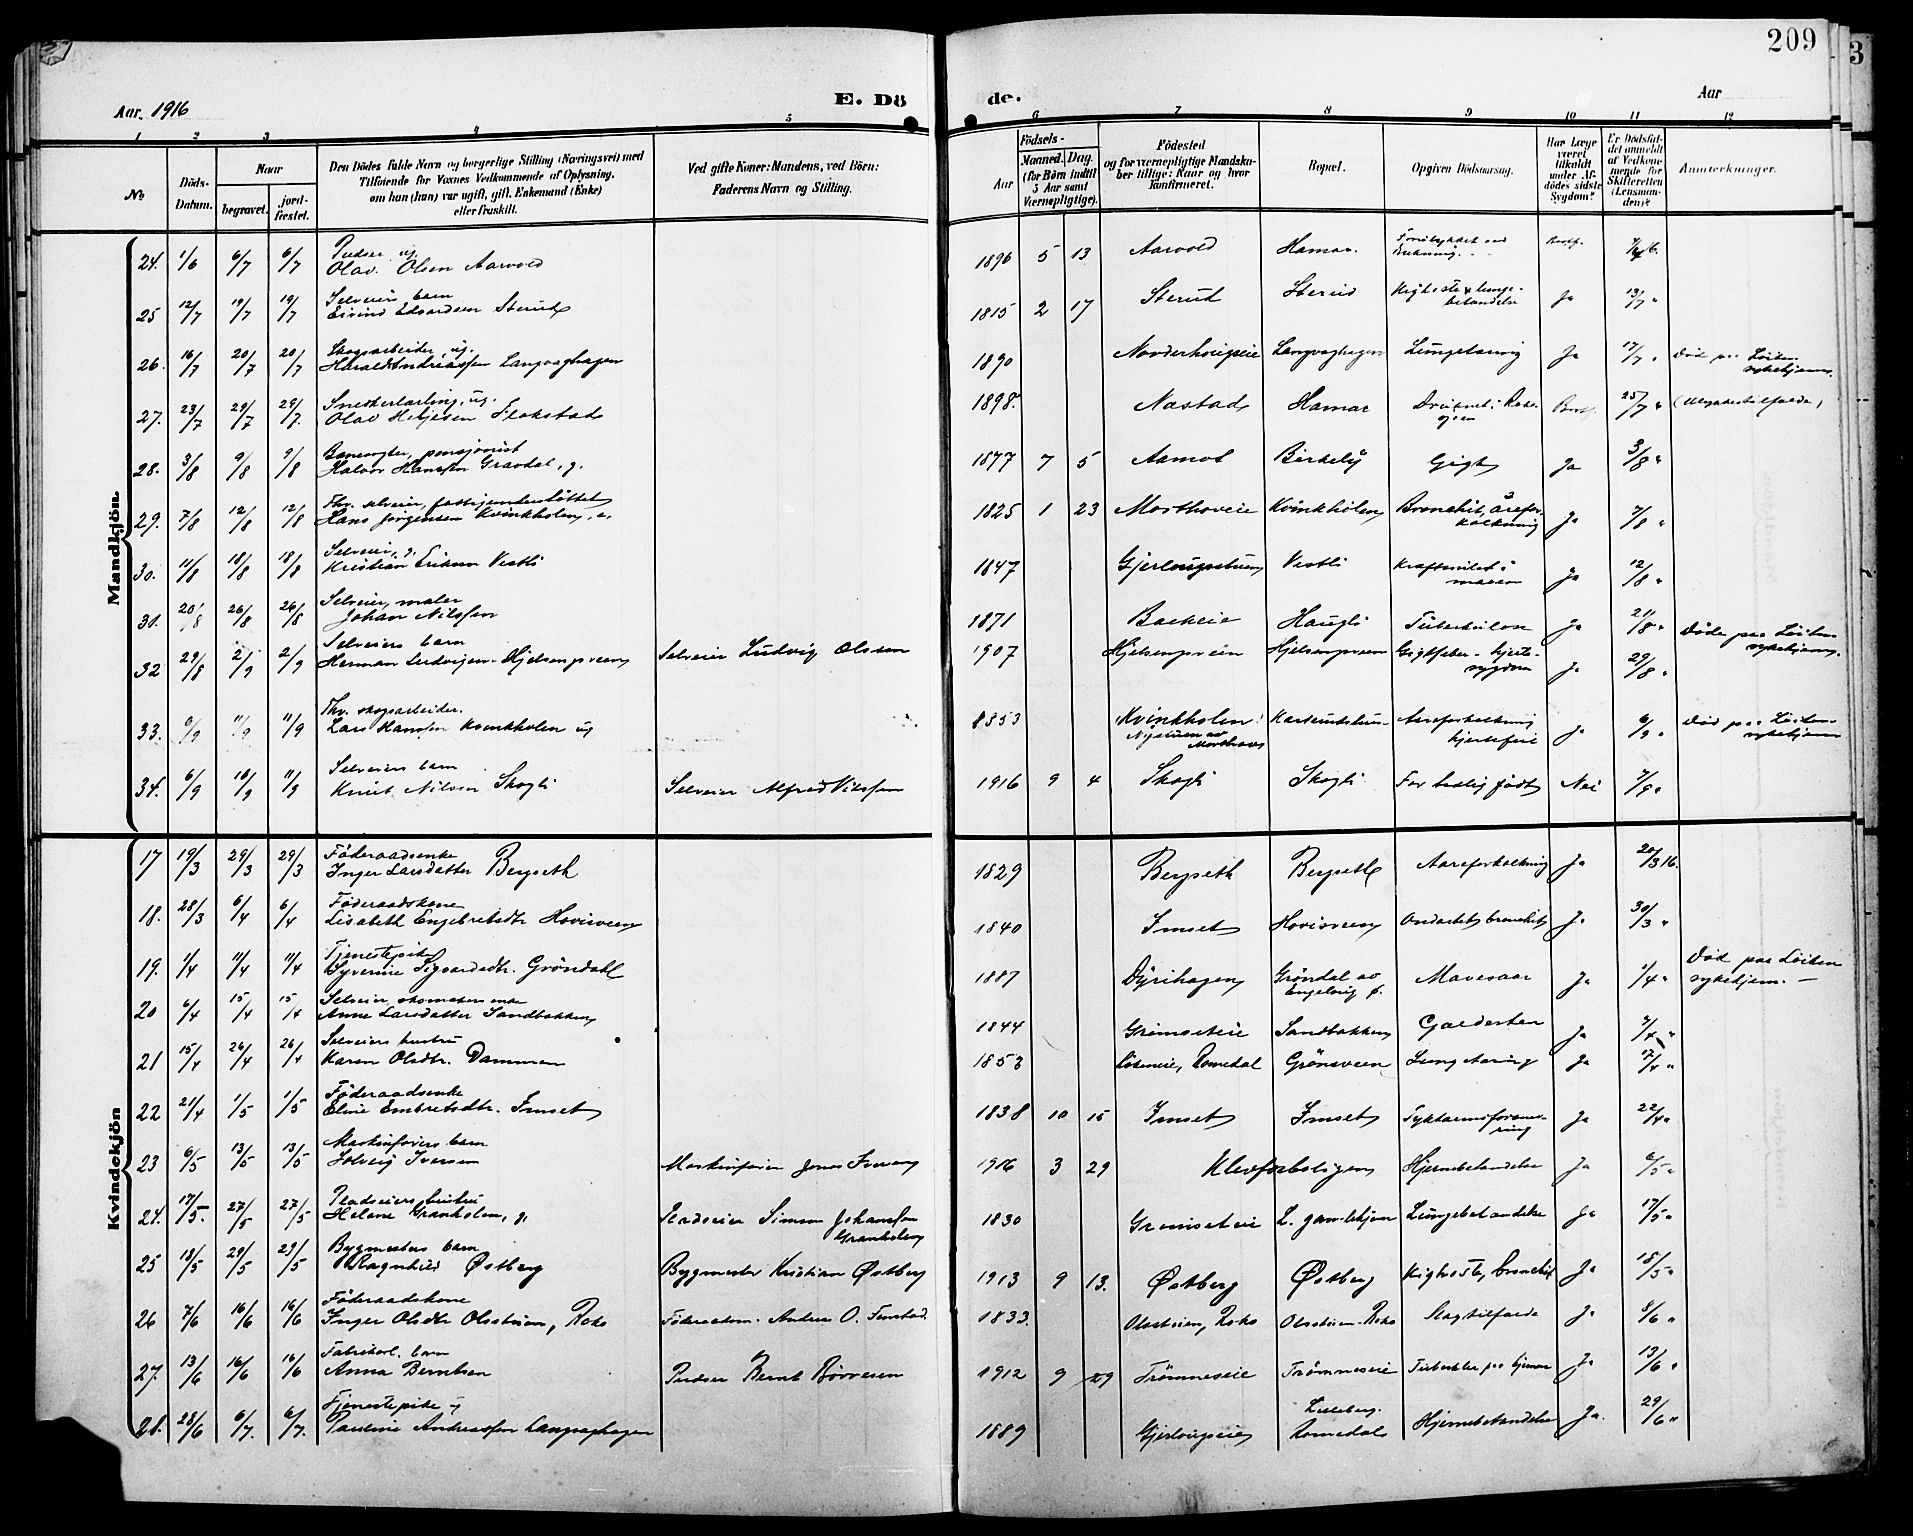 209
3
Aar 1916
E. Dö
de.
Aar
1 2 3 4 5 6 7 8 9 10 11 12
No
Döds-Datum.
Naar
begravet.
jordfæstet.
Den Dödes fulde Navn og borgerlige Stilling (Næringsvei) med
Tilföiende for Voxnes Vedkommende af Oplysning,
om han (hun) var ugift, gift, Enkemand (Enke)
eller fraskilt.
Ved gifte Koner: Mandens, ved Börn:
Faderens Navn og Stilling.
Födsels-
Aar
Maaned. Dag.
(for Börn indtil
5 Aar samt
Værnepligtige).
Födested
og for værnepligtige Mandskaber tillige: Naar og hvor
konfirmeret.
Bopæl.
Opgiven Dödsaarsag.
Har Læge
været
tilkaldt
under Afdödes sidste
Sygdom?
Er Dödsfaldet anmeldt
af Vedkommende for
Skifteretten
(Lensmanden)?
Anmerkninger.
Mandkjön
24. 1/6 6/7 6/7 Pudser ug. Olav Olsen Aarvold 1896 5 13 Aarvold Hamar
25 12/7 19/7 19/7 Selveiers barn Eivind Edvardsen Sterud 1815 2 17 Sterud Sterud Kighoste & lungebetændelse Ja 13/7 "
26. 16/7 20/7 20/7 Skogsarbeider, ug. Harald Andreassen Langvaghagen 1890 Langvaghagen Lungetæring Ja 17/7 " Død paa Løiten sykehjem.
27. 23/7 29/7 29/7. Snekkerlærling, ug. Olav 1898. Nastad Hamar Druknet i 25/7 " (Ulykkestilfælde)
28. 3/8 9/8 9/8 Banevogter, pensjonist Halvor Hansen Grøvdal, g. 1877 7 5 Aamot Birkely Gigt Ja 3/8 "
29. 7/8 12/8 12/8 Fhv. selveier, fattigunderstøttet Hans Jørgensen Kvinkholen, e. 1825 1 23 Mosthoveie Kvinkholen Bronchit, åreforkalkning Ja 7/8 "
30. 11/8 18/8 18/8 Selveier, g. Kristian Eriksen Vestli 1847 Vestli Ja 12/8 "
31. 20/8 26/8 26/8 Selveier, maler Johan Nilssen 1871 Bakkeie Haugli Tuberkulose Ja 21/8 "
32 29/8 2/9 2/9 Selveiers barn Herman Ludvigsen Hjelsengsveen Selveier Ludvig Olsen 1907 Hjelsengsveen Hjelsengsveen Gigtfeber - hjertesygdom Ja 29/8 " Døde paa Løiten sykehjem.
33. 6/9 11/9 11/9 Fhv. skogsarbeider. Lars Hansen Kvinkholen ug 1853 Kvinkholen Aareforkalkning hjertefeil Ja 6/9 " Død paa Løiten sykehjem
34. 6/9 10/9 11/9 Selveiers barn Knut Nilsen Skogli Selveier Alfred Nilssen 1916 9 4 Skogli Skogli For tidlig født Nei 7/9 "
Kvindekjön
17 19/3 29/3 29/3 Føderaadsenke Inger Larsdatter Bergseth 1829 Bergseth Bergseth Aareforkalkning Ja 20/3 16.
18. 28/3 6/4 6/4 Føderaadskone Lisabeth Engebretsdtr Hovisveen 1840 Imset Hovisveen Ondartet bronchit Ja 30/3 "
19. 1/4 11/4 11/4 Tjenestepike Syverine Sigvardsdtr. Grøndahl 1887 Dyrihagen Grøndal av Engelovig ø. Mavesaar Ja 1/4 " Død paa Løiten sykehjem. —
20 6/4 15/4 15/4 Selveier, skomakers enke Anne Larsdatter Sandbakken 1844 Grimseteie Sandbakken Galdesten Ja 7/4 "
21 15/4 26/4 26/4 Selveiers hustru Karen Olsdtr. Dammen 1853 Romedal Grønsveen Lungetæring Ja 17/4 "
22 21/4 1/5 1/5 Føderaadsenke Eline Embretsdtr. Imset 1838 10 15 Imset Imset Ja 22/4 "
23 6/5 13/5 13/5 Maskinførers barn Solveig Iversen Maskinfører Jonas Iversen 1916 3 29 Klevfosboligen Hjernebetændelse Ja 6/5 "
24. 17/5. 27/5 27/5 Pladseiers hustru Helene Granholen, g. Pladseier Simen Johansen Granholen 1830 Grimseteie L. gamlehjem Lungebetændelse Ja 17/5 "
25 18/5 29/5 29/5 Bygmesters barn Ragnhild Østberg Bygmester Kristian Østberg 1913 9 13. Østberg Østberg Kighoste, bronchit Ja 18/5 "
26 7/6 16/6 16/6 Føderaadskone Inger Olsdtr Olsstuen, Roko Føderaadsm. Andreas O. Finstad 1833. Olsstuen, Roko Olsstuen Roko Slagtilfælde Ja 8/6 "
27. 13/6 16/6 16/6 Fabrikarb. barn Anna Berntsen Pudser Bernt Børresen 1912 9 29 Trømneseie Trømneseie Ja 13/6 "
28. 28/6 6/7. 6/7. Tjenestepike ug Pauline Andreassen Langvaghagen 1889 Gjerlougseie Lilleberg. Romedal Hjernebetændelse Ja. 29/6 "